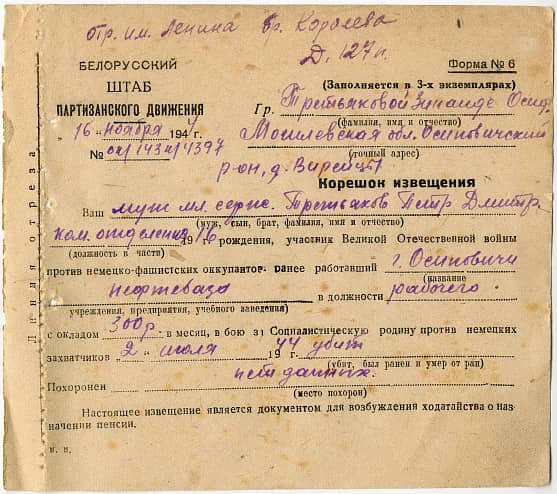 отр. им. Ленина бр. Королева
Д. 127 п.
БЕЛОРУССКИЙ
ШТАБ
ПАРТИЗАНСКОГО ДВИЖЕНИЯ
„16" ноября 1944
№
Форма № 6
(Заполняется в 3-х экземплярах)
Гр. Третьяковой Зинаиде Осип.
(фамилия, имя и отчество)
Могилевская обл. Осиповичский
(точный адрес)
р-он, д. Вирейцы
Корешок извещения
Ваш муж мл. серж. Третьяков Петр Дмитр.
(муж, сын, брат, фамилия, имя и отчество)
ком. отделения 1916 г. рождения, участник Великой Отечественной войны
(должность в части)
против немецко-фашистских оккупантов ранее работавший г. Осиповичи
(название
нефтебаза в должности рабочего
учреждения, предприятия, учебного заведения)
с окладом 300 р. в месяц, в бою за Социалистическую родину против немецких
захватчиков „2" июля 1944 г. убит
(убит, был ранен и умер от ран)
Похоронен нет данных.
(место похорон)
Настоящее извещение является документом для возбуждения ходатайства о наз-
начении пенсии.
Линия отреза